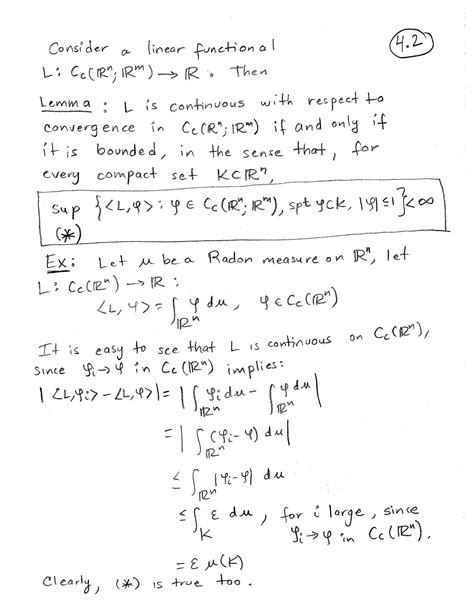 Consider a linear functional
4.2
L: Cc(ℝⁿ;ℝᵐ) → ℝ. Then
Lemma: L is continuous with respect to
convergence in Cc(ℝⁿ;ℝᵐ) if and only if
it is bounded, in the sense that, for
every compact set K⊂ℝⁿ,
sup {<L,φ>: φ ∈ Cc(ℝⁿ;ℝᵐ), spt φ⊂K, |φ|≤1}<∞
(*)
Ex: Let μ be a Radon measure on ℝⁿ, let
L: Cc(ℝⁿ) → ℝ:
<L,φ> = ∫_ℝⁿ φ dμ, φ ∈ Cc(ℝⁿ)
It is easy to see that L is continuous on Cc(ℝⁿ),
since φᵢ→φ in Cc(ℝⁿ) implies:
|<L,φᵢ>-<L,φ>| = |∫_ℝⁿ φᵢ dμ - ∫_ℝⁿ φ dμ|
= |∫_ℝⁿ (φᵢ-φ) dμ|
≤ ∫_ℝⁿ |φᵢ-φ| dμ
≤ ∫_K ε dμ, for i large, since
φᵢ→φ in Cc(ℝⁿ).
= ε μ(K)
Clearly, (*) is true too.